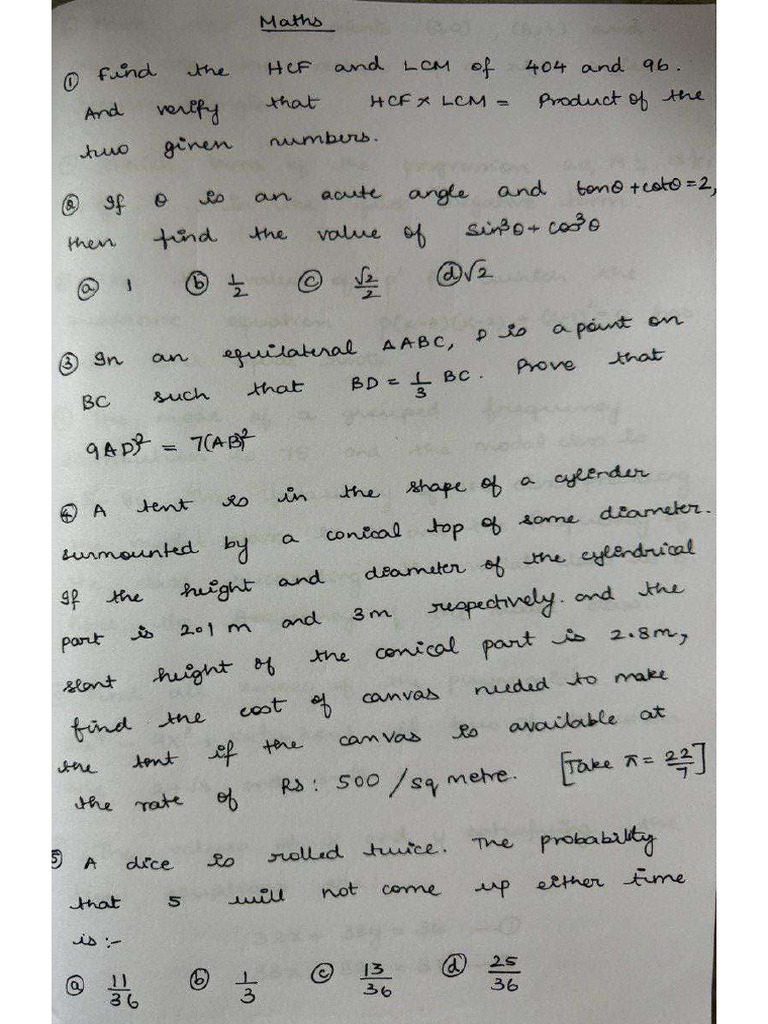 Maths
① Find the HCF and LCM of 404 and 96.
And verify that HCF x LCM = Product of the
two given numbers.
② If θ is an acute angle and tanθ + cotθ = 2,
then find the value of sin³θ + cos³θ
ⓐ 1 ⓑ 1/2 ⓒ √2/2 ⓓ √2
③ In an equilateral ΔABC, D is a point on
BC such that BD = 1/3 BC. Prove that
9AD)² = 7(AB)²
④ A tent is in the shape of a cylinder
surmounted by a conical top of same diameter.
If the height and diameter of the cylindrical
part is 2.1 m and 3m respectively. and the
slant height of the conical part is 2.8m,
find the cost of canvas needed to make
the tent if the canvas is available at
the rate of Rs: 500 / sq metre. [Take π = 22/7]
⑤ A dice is rolled twice. The probability
that 5 will not come up either time
is :-
ⓐ 11/36 ⓑ 1/3 ⓒ 13/36 ⓓ 25/36